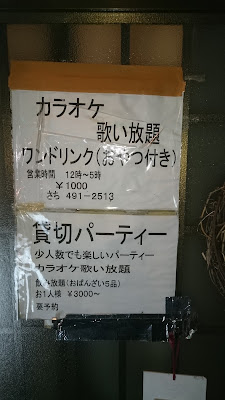 カラオケ
歌い放題
ワンドリンク(おやつ付き)
営業時間 12時~5時
¥1000
さち 491-2513
貸切パーティー
少人数でも楽しいパーティー
カラオケ歌い放題
飲み放題(おばんざい5品)
お1人様 ¥3000~
要予約